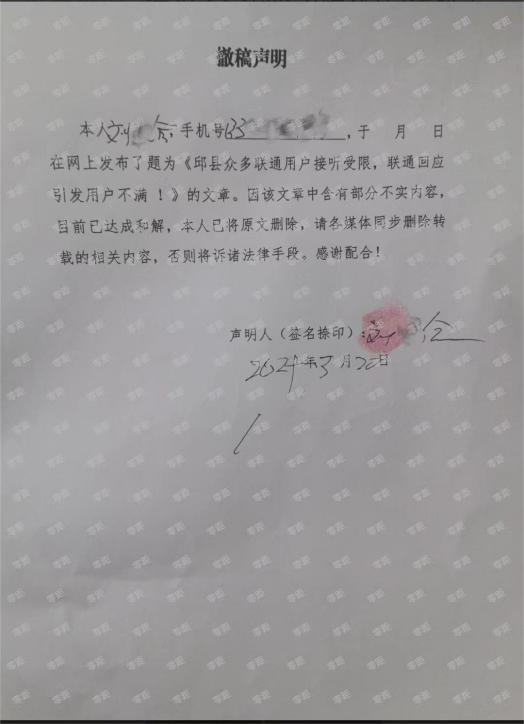 撤稿声明
本人刘 会,手机号133 ,于 月 日
在网上发布了题为《邱县众多联通用户接听受限,联通回应
引发用户不满！》的文章。因该文章中含有部分不实内容,
目前已达成和解,本人已将原文删除,请各媒体同步删除转
载的相关内容,否则将诉诸法律手段。感谢配合！
声明人（签名捺印）:刘 会
2024年3月20日
零距